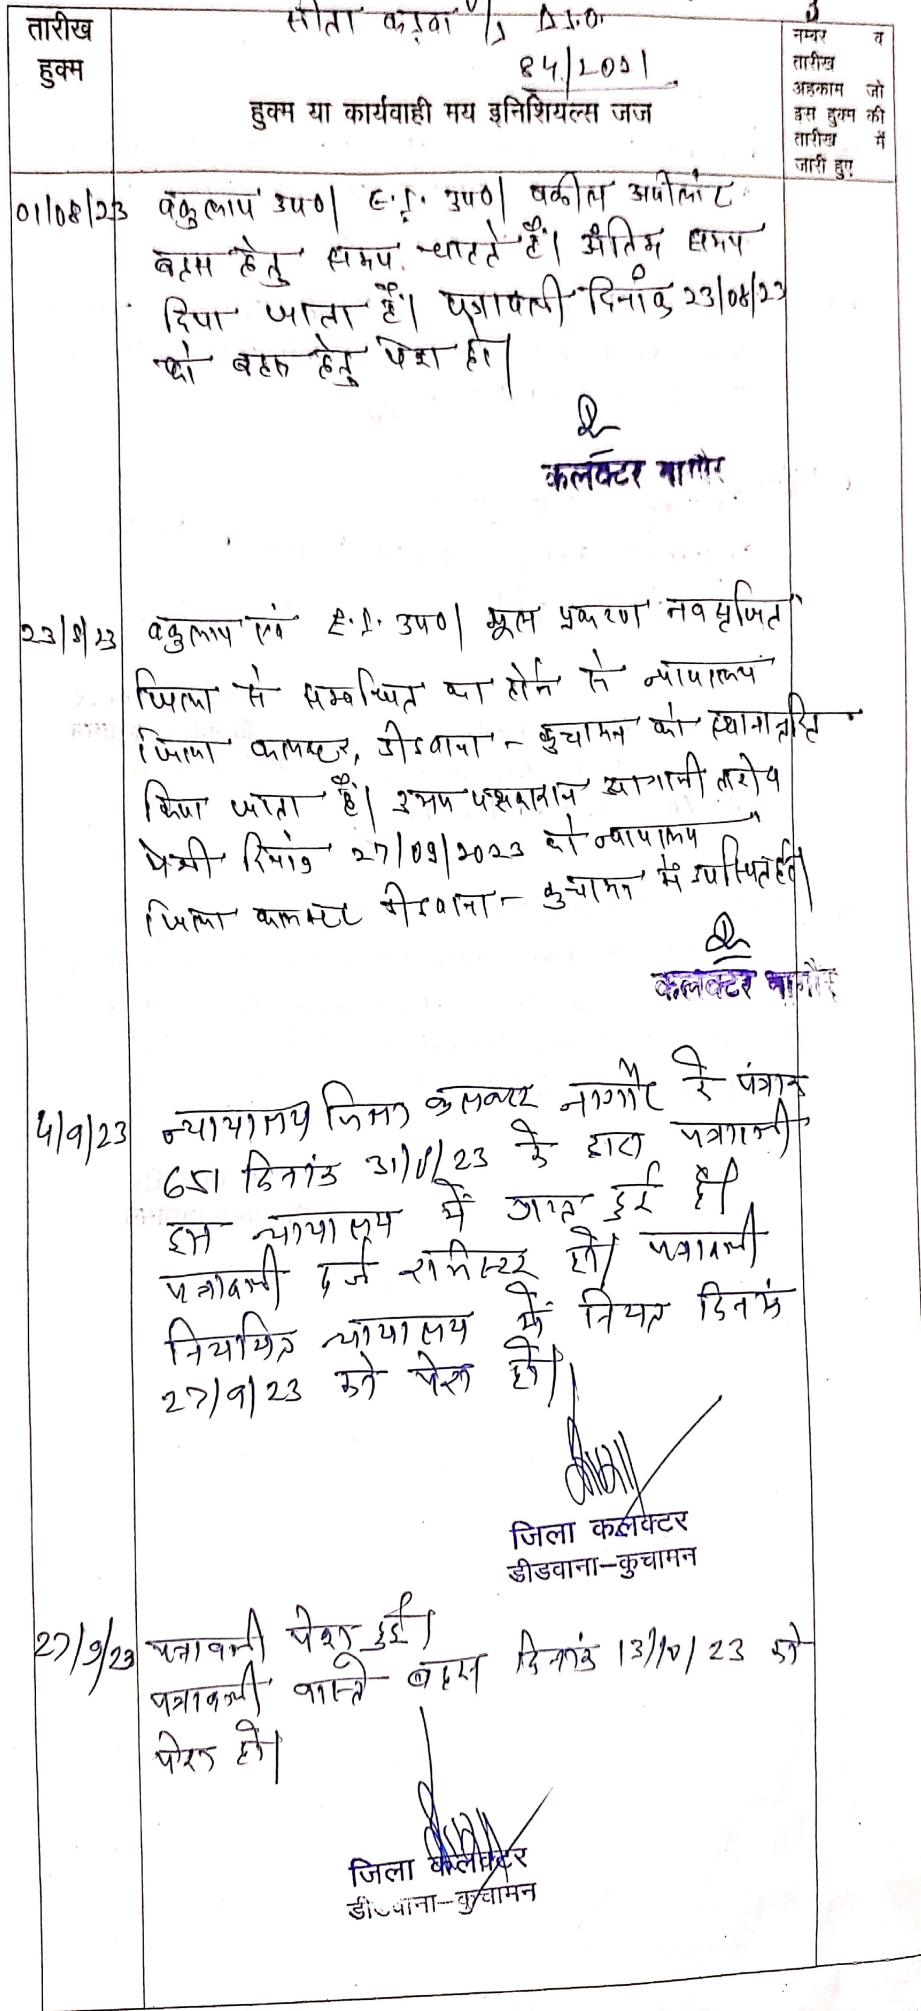 तारीख
हुक्म
सीता कड़वा V/s D.S.O.
84/2021
हुक्म या कार्यवाही मय इनिशियल्स जज
नम्बर व
तारीख
अहकाम जो
इस हुक्म की
तारीख में
जारी हुए
01/08/23
वकुलाय उप०। E.I. उप०। वकील अपीलांट
बहस हेतु समय चाहते हैं। अंतिम समय
दिया जाता है। पत्रावली दिनांक 23/08/23
को बहस हेतु पेश हो।
कलक्टर नागौर
23/8/23
वकुलाय एवं E.I. उप०। मूल प्रकरण नवसृजित
जिला से सम्बन्धित का होने से न्यायालय
जिला कलक्टर, डीडवाना - कुचामन को स्थानान्तरित
किया जाता है। उभय पक्षकारान आगामी तारीख
पेशी दिनांक 27/09/2023 को न्यायालय
जिला कलक्टर डीडवाना - कुचामन में उपस्थित होवें।
कलक्टर नागौर
4/9/23
न्यायालय जिला कलक्टर नागौर के पत्रांक
651 दिनांक 31/8/23 के द्वारा पत्रावली
इस न्यायालय में प्राप्त हुई है।
पत्रावली दर्ज रजिस्टर हो। पत्रावली
नियमित न्यायालय में नियत दिनांक
27/9/23 को पेश हो।
जिला कलक्टर
डीडवाना-कुचामन
27/9/23
पत्रावली पेश हुई।
पत्रावली वास्ते बहस दिनांक 13/10/23 को
पेश हो।
जिला कलक्टर
डीडवाना-कुचामन